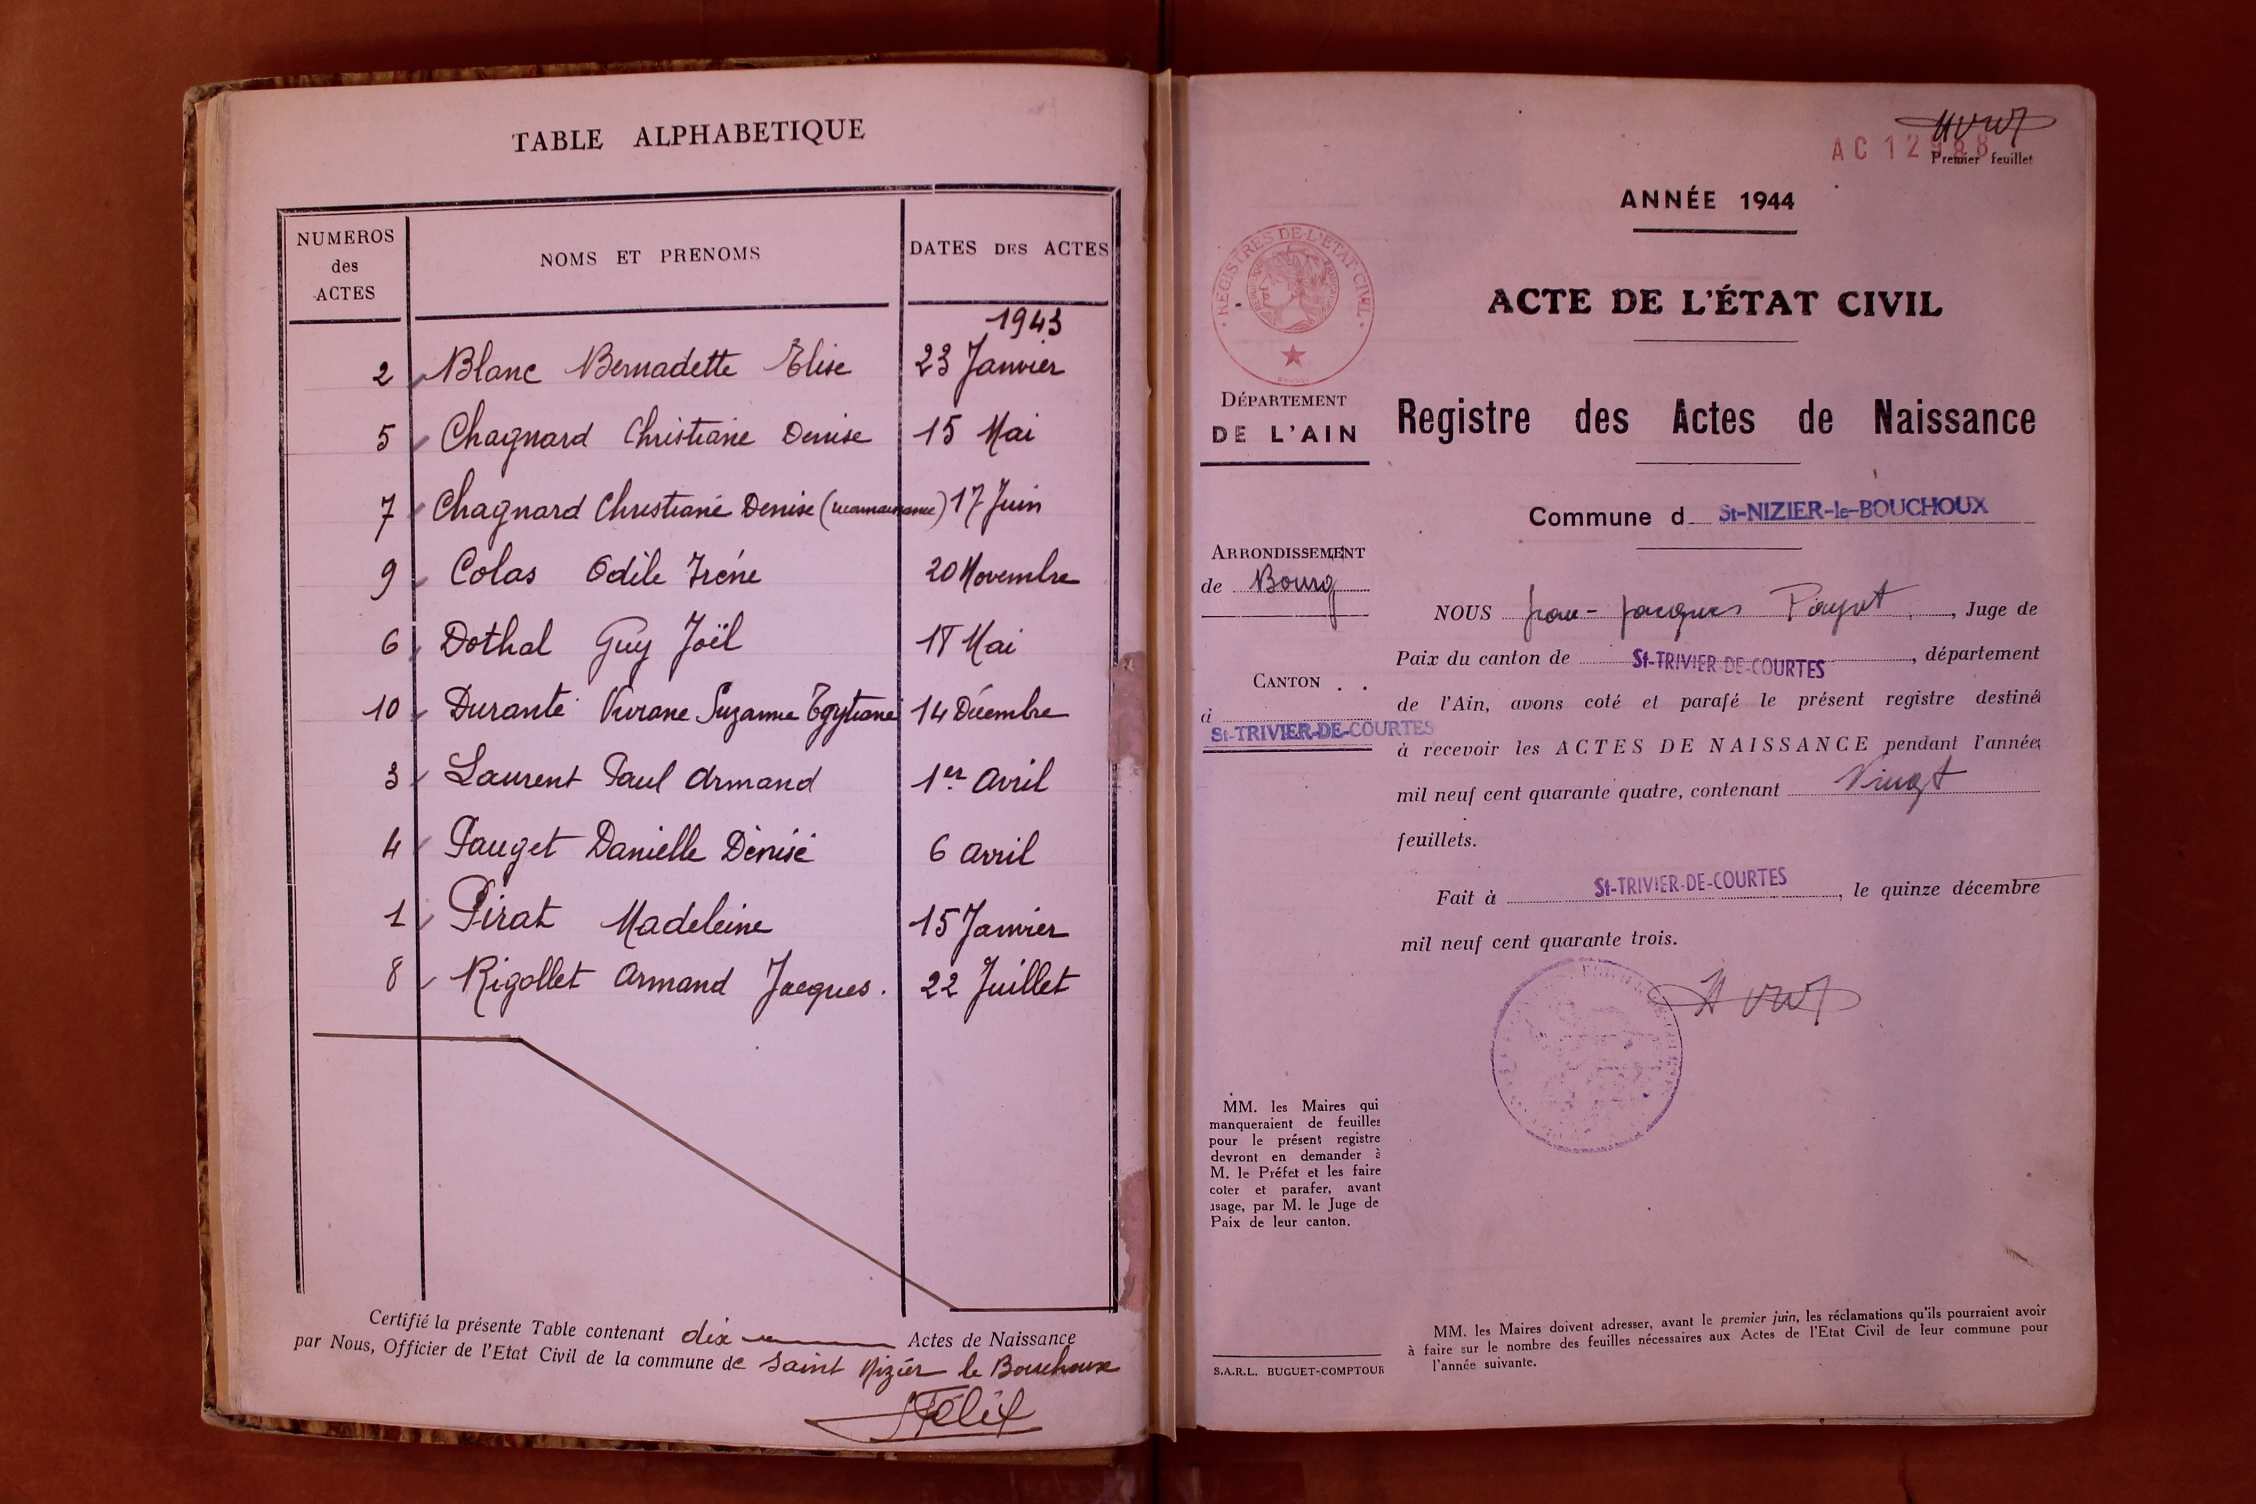 TABLE ALPHABETIQUE
NUMEROS des ACTES
NOMS ET PRENOMS
DATES DES ACTES
1943
2 Blanc Bernadette Elise 23 Janvier
5 Chagnard Christiane Denise 15 Mai
7 Chagnard Christiane Denise (reconnaissance) 17 Juin
9 Colas Odile Irène 20 Novembre
6 Dothal Guy Joël 17 Mai
10 Durante Viviane Suzanne 14 Décembre
3 Laurent Paul Armand 1er Avril
4 Pauget Danielle Denise 6 Avril
1 Pirat Madeleine 15 Janvier
8 Rigollet Armand Jacques. 22 Juillet
Certifié la présente Table contenant dix Actes de Naissance
par Nous, Officier de l'Etat Civil de la commune de Saint Nizier le Bouchoux
Félix
AC 12988
Premier feuillet
ANNÉE 1944
REGISTRES DE L'ETAT CIVIL
ACTE DE L'ÉTAT CIVIL
DÉPARTEMENT
DE L'AIN
Registre des Actes de Naissance
Commune d St-NIZIER-le-BOUCHOUX
ARRONDISSEMENT
de Bourg
CANTON
à
St-TRIVIER-DE-COURTES
NOUS Jean-Jacques , Juge de
Paix du canton de St-TRIVIER-DE-COURTES, département
de l'Ain, avons coté et parafé le présent registre destiné
à recevoir les ACTES DE NAISSANCE pendant l'année
mil neuf cent quarante quatre, contenant Vingt
feuillets.
Fait à St-TRIVIER-DE-COURTES, le quinze décembre
mil neuf cent quarante trois.
MM. les Maires qui
manqueraient de feuilles
pour le présent registre
devront en demander à
M. le Préfet et les faire
coter et parafer, avant
usage, par M. le Juge de
Paix de leur canton.
S.A.R.L. BUGUET-COMPTOUR
MM. les Maires doivent adresser, avant le premier juin, les réclamations qu'ils pourraient avoir
à faire sur le nombre des feuilles nécessaires aux Actes de l'Etat Civil de leur commune pour
l'année suivante.